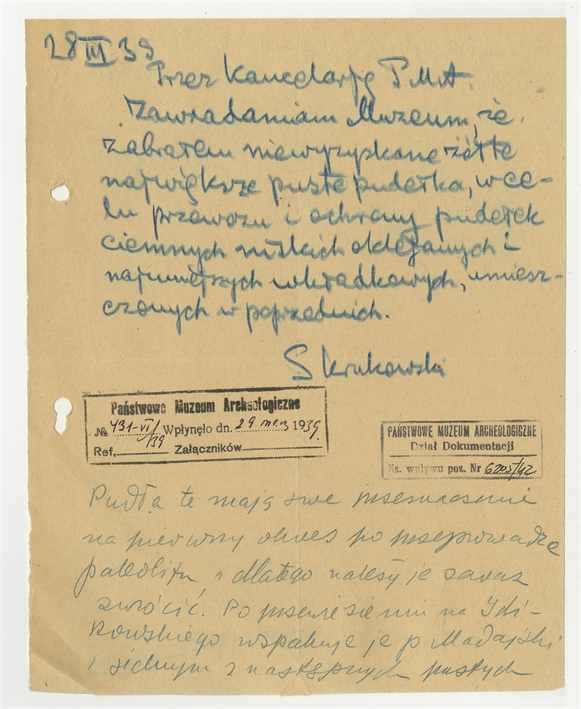 28 III 39
Przez Kancelarję P.M.A.
Zawiadamiam Muzeum, że
zabrałem niewyzyskane żółte
największe puste pudełka, w ce-
lu przewozu i ochrony pudełek
ciemnych niskich oklejanych i
najmniejszych wkładkowych, umiesz-
czonych w poprzednich.
S Krukowski
Państwowe Muzeum Archeologiczne
№ 431-VI/39 Wpłynęło dn. 29 marz 1939.
Ref, Załączników
PAŃSTWOWE MUZEUM ARCHEOLOGICZNE
Dział Dokumentacji
Ks. wpływu poz. Nr
Pudła te mają swe przeznaczenie
na pierwszy okres po przeprowadzce
paleolitu i dlatego należy je zaraz
zwrócić. Po przewiezieniu na
wspakuje je p. Madajski
i jednym z następnych pustych